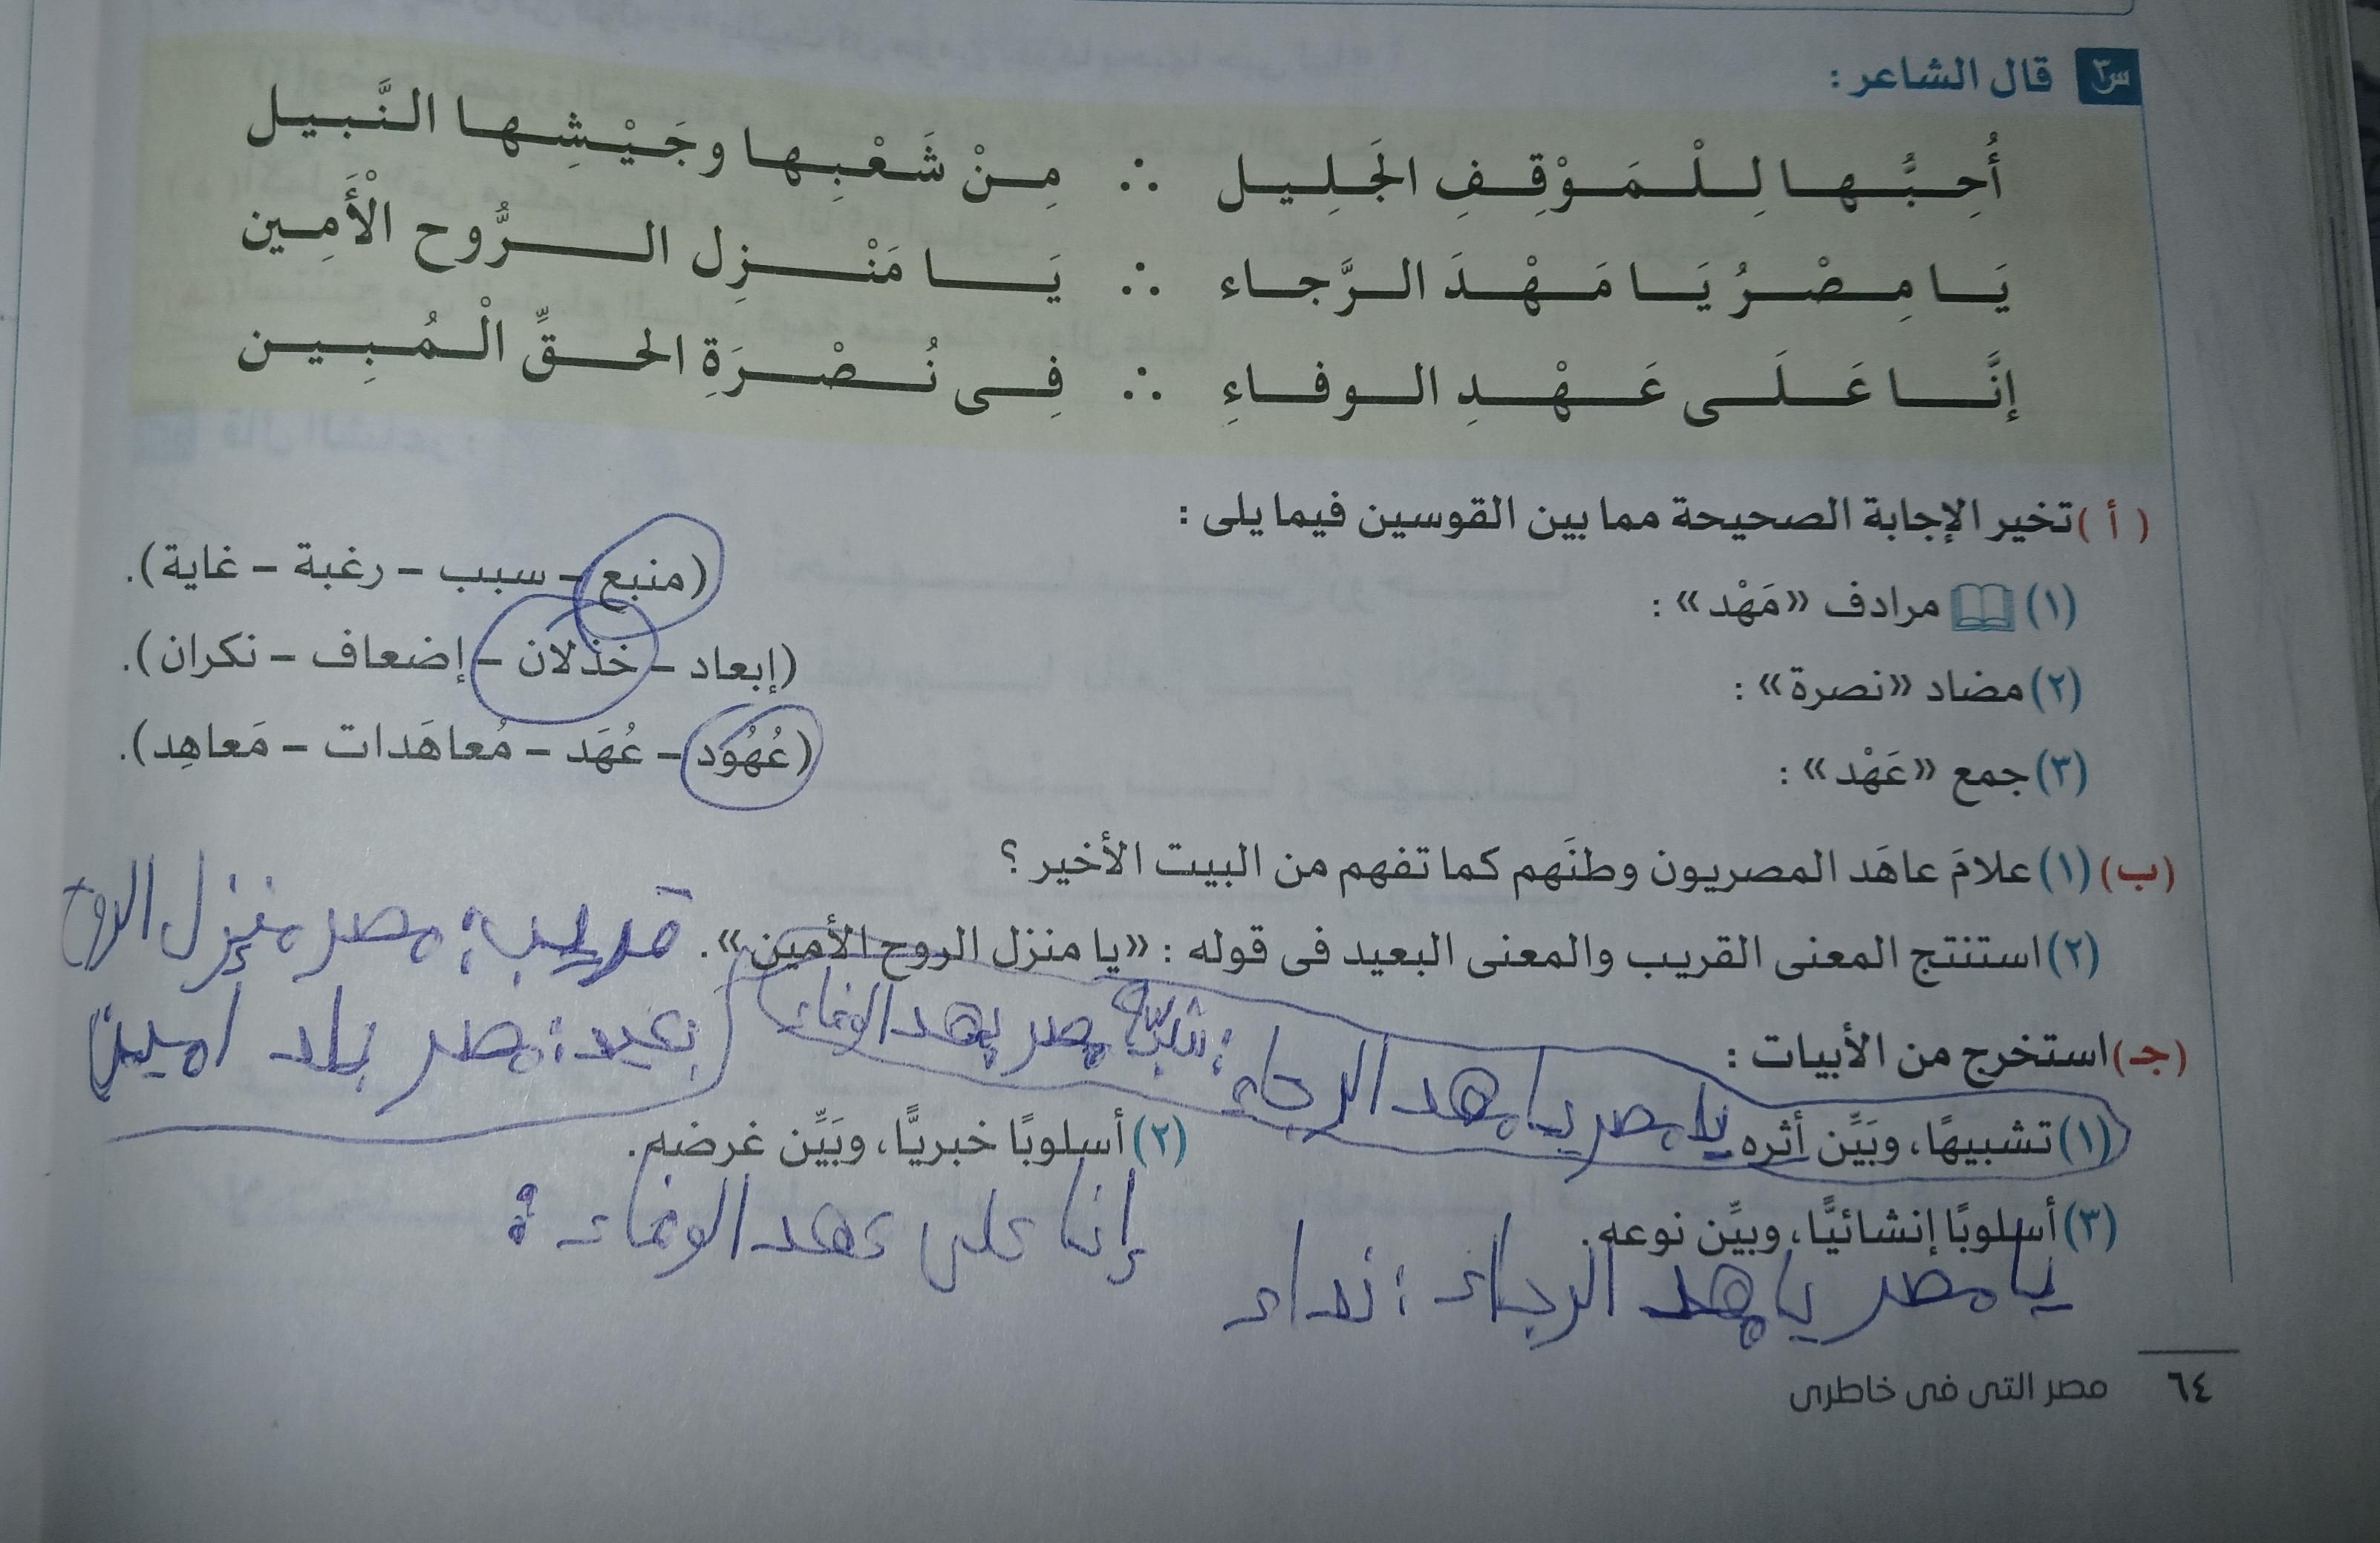 س٣ قال الشاعر :
أُحِبُّها لِلْمَوْقِفِ الجَلِيل ∴ مِنْ شَعْبِها وجَيْشِها النَّبيل
يَا مِصْرُ يَا مَهْدَ الرَّجاء ∴ يَا مَنْزِل الرُّوح الْأَمِين
إنَّا عَلَى عَهْدِ الوفاءِ ∴ فِى نُصْرَةِ الحقِّ الْمُبِين
( أ ) تخير الإجابة الصحيحة مما بين القوسين فيما يلى :
(١) مرادف «مَهْد» : (منبع – سبب – رغبة – غاية).
(٢) مضاد «نصرة» : (إبعاد – خذلان – إضعاف – نكران).
(٣) جمع «عَهْد» : (عُهُود – عُهَد – مُعاهَدات – مَعاهِد).
(ب) (١) علامَ عاهَد المصريون وطنَهم كما تفهم من البيت الأخير ؟
(٢) استنتج المعنى القريب والمعنى البعيد فى قوله : «يا منزل الروح الأمين». قريب: مصر منزل الروح
بعيد: مصر بلد امين
(جـ) استخرج من الأبيات :
(١) تشبيهًا، وبَيِّن أثره. يا مصر يا مهد الرجاء: شبه مصر بهد الوفاء
(٢) أسلوبًا خبريًّا، وبَيِّن غرضه.
إنا على عهد الوفاء :
(٣) أسلوبًا إنشائيًّا، وبيِّن نوعه.
يا مصر يا مهد الرجاء : نداء
٦٤ مصر التى فى خاطرى